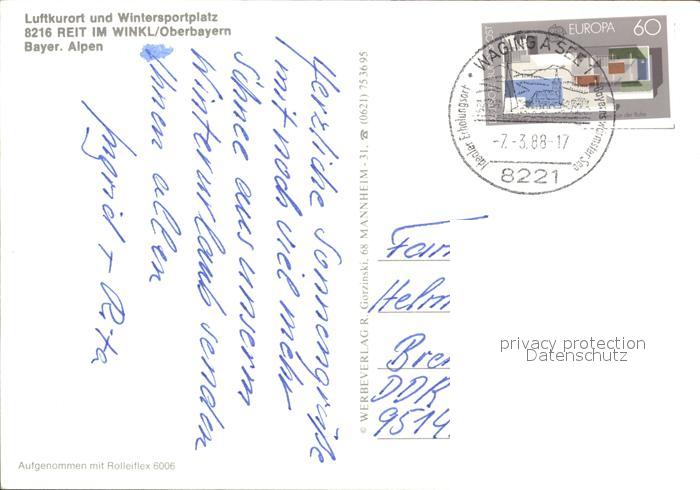 Luftkurort und Wintersportplatz
8216 REIT IM WINKL/Oberbayern
Bayer. Alpen
Herzliche Sonnengrüße
mit noch viel mehr
Schnee aus unserm
Winterurlaub senden
Ihnen allen
Ingrid + Rita
Aufgenommen mit Rolleiflex 6006
© WERBEVERLAG R. Gorzinski, 68 MANNHEIM-31, ☎ (0621) 753695
EUROPA 60
WAGING A SEE 1
Idealer Erholungsort
-7.-3.88-17
8221
Fam
Helm
Bre
DDR
9514
privacy protection
Datenschutz